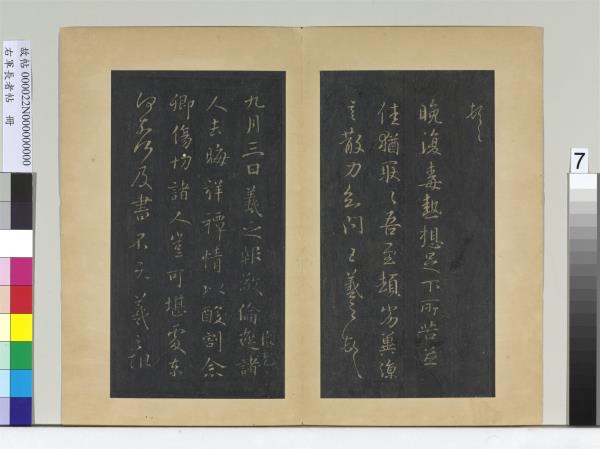 故帖 000022N000000000
右軍長者帖 冊
7
頓首
晚復毒熱想足下所苦並
佳猶耿耿吾至頓劣冀涼
言散力知問王羲之頓首
九月三日羲之報敬倫遮諸
人去晦祥禫情以酸割念
卿傷切諸人豈可堪處奈
何奈何及書不既羲之報